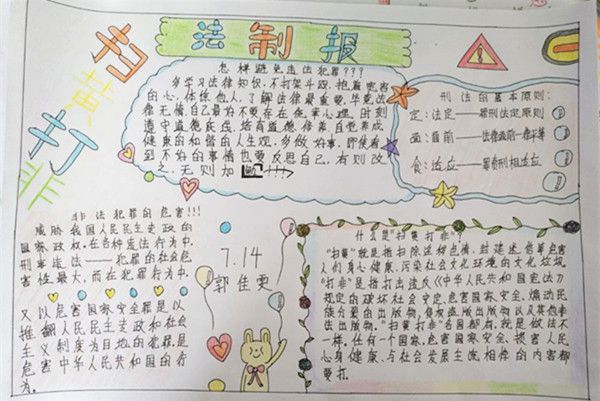 扫黄打非
法制报
怎样避免违法犯罪???
多学习法律知识,不打架斗殴,抱着宽容
的心,体练他人,了解法律最重要,毕竟法
律无情,自己最好不要存在侥幸心理,时刻
遵守道德民线,培育道德修养,自觉养成
健康的和谐的人生观,多做好事,即使看
到不好的事情也要反思自己,有则改
之,无则加
刑法的基本原则:
定:法定——罪刑法定原则
面:面前——法律面前一律平等
食:适应——罪责刑相适应
非法犯罪的危害!!!
威胁我国人民民主专政的
国家政权,在各种违法行为中,
刑事违法——犯罪的社会危
害性最大,而在犯罪行为中,
又以危害国家安全罪是以
推翻人民民主专政和社会
主义制度为目地的犯罪,是
危害中华人民共和国的行
为。
7.14
郭佳雯
什么是"扫黄打非"?
"扫黄"就是指扫除淫秽色情、封建迷信等危害
人们身心健康、污染社会文化环境的文化垃圾
"打非"是指打击违反《中华人民共和国宪法》
规定的破坏社会安定、危害国家安全、煽动民
族分裂的出版物,侵权盗版出版物以及其他非
法出版物,"扫黄打非"各国都有,就是做法不
一样,任何一个国家,危害国家安全、损害人民
心身健康、与社会发展主流相悖的内容都
要打。